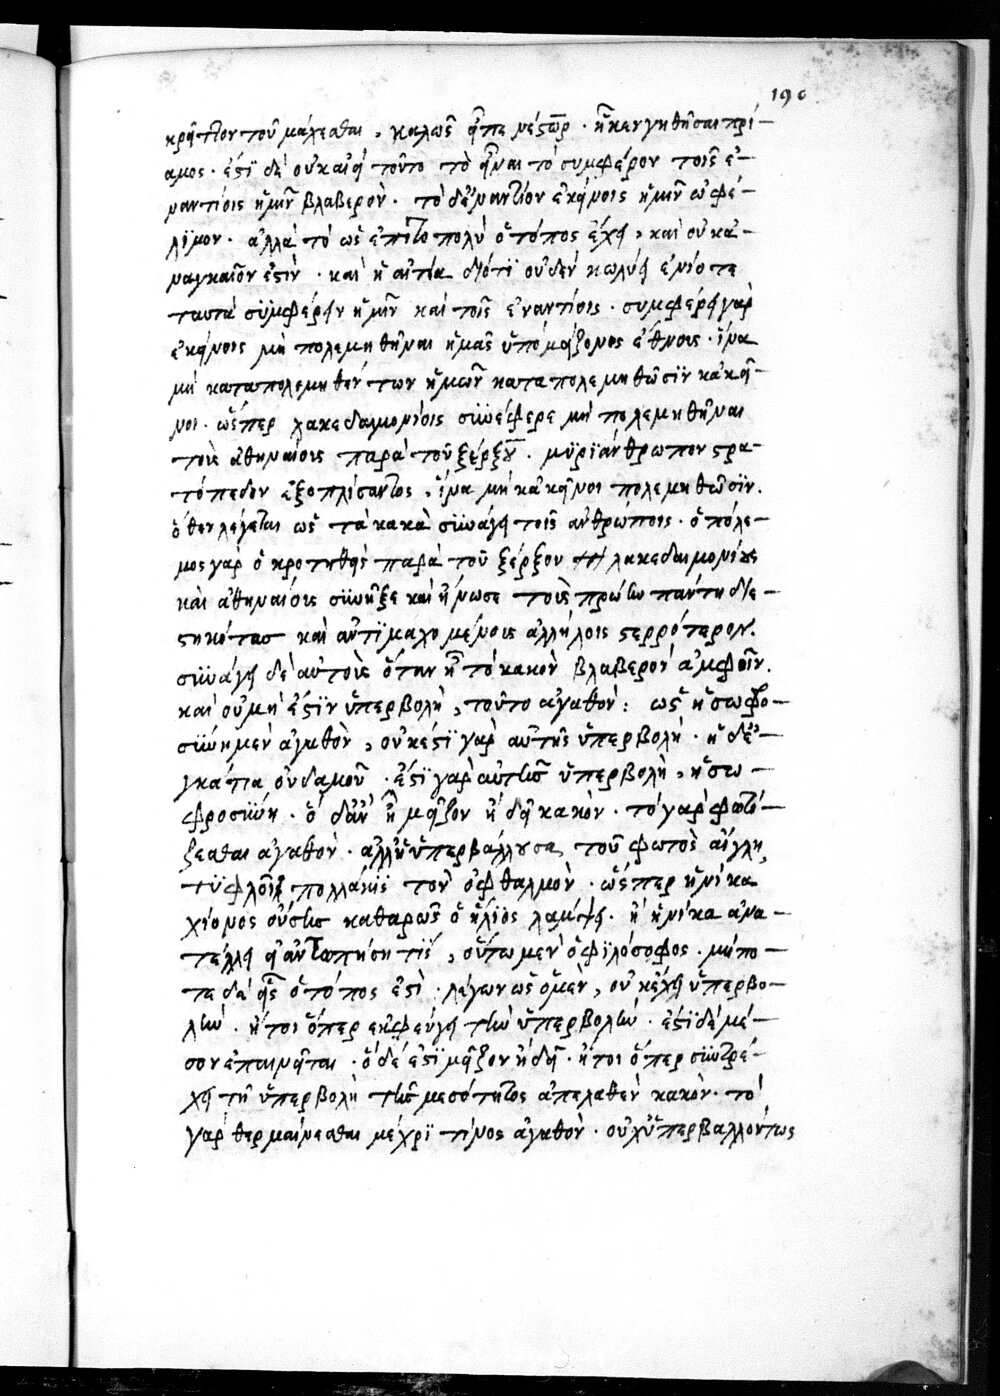 190
κρεῖττον τοῦ μάχεσθαι, καλῶς εἶπε νέστωρ· ἦ κεν γηθῆσαι πρί-
αμος· ἐστὶ δὲ οὐκ ἀεὶ τοῦτο τὸ εἶναι τὸ συμφέρον τοῖς ἐ-
ναντίοις ἡμῖν βλαβερὸν· τὸ δ' ἐναντίον ἐκείνοις ἡμῖν ὠφέ-
λϊμον· ἀλλὰ τὸ ὡς ἐπιτοπολὺ ὁ τόπος ἔχει, καὶ οὐκ ἀ-
ναγκαῖον ἐστὶν· καὶ ἡ αἰτία διότϊ οὐδὲν κωλύει ἐνίοτε
ταυτὰ συμφέρειν ἡμῖν καὶ τοῖς ἐναντίοις· συμφέρει γὰρ
ἐκείνοις μὴ πολεμηθῆναι ἡμᾶς ὑπὸ μείζονος ἔθνους· ἵνα
μὴ καταπολεμηθέντων ἡμῶν καταπολεμηθῶσϊν κἀκεῖ-
νοι· ὥσπερ λακεδαιμονίοις συνέφερε μὴ πολεμηθῆναι
τοὺς ἀθηναίους παρὰ τοῦ ξέρξου· μϋρϊάνθρωπον στρα-
τόπεδον ἐξοπλίσαντος, ἵνα μὴ κἀκεῖνοι πολεμηθῶσϊν.
ὅθεν λέγεται ὡς τὰ κακὰ συνάγει τοῖς ἀνθρώποις· ὁ πόλε-
μος γὰρ ὁ κροτηθεὶς παρὰ τοῦ ξέρξου λακεδαιμονίους
καὶ ἀθηναίους συνῆξε καὶ ἥνωσε τοὺς πρώην πάντη διε-
στηκότας καὶ ἀντϊμαχομένους ἀλλήλοις στερρότερον.
συνάγει δὲ αὐτοὺς ὅταν ᾖ τὸ κακὸν βλαβερὸν ἀμφοῖν.
καὶ οὗ μὴ ἐστϊν ὑπερβολὴ, τοῦτο ἀγαθὸν: ὡς ἡ σωφρο-
σύνη μὲν ἀγαθὸν, οὐκ ἐστϊ γὰρ αὐτῆς ὑπερβολὴ· ἡ δ' ἐ-
γκράτεια οὐδαμοῦ· ἐστϊ γὰρ αὐτῆς ὑπερβολὴ, ἡ σω-
φροσύνη· ὃ δ' ἂν ᾖ μεῖζον ἢ δεῖ κακὸν· τὸ γὰρ φωτί-
ζεσθαι ἀγαθὸν· ἀλλ' ἡ ὑπερβάλλουσα τοῦ φωτὸς αἴγλη,
τϋφλοῖ πολλάκϊς τὸν ὀφθαλμὸν· ὥσπερ ἡνίκα
χιόνος οὔσης καθαρῶς ὁ ἥλϊος λαμψει· ἢ ἡνίκα ἀνα-
τέλλει εἰ ἀντωπήση τϊς, οὕτω μὲν ὁ φϊλόσοφος· μήπο-
τε δὲ εἷς ὁ τόπος ἐστὶ· λέγων ὡς ὃ μὲν, οὐκ ἔχει ὑπερβο-
λὴν· ἤτοι ὅπερ ἐκφεύγει τὴν ὑπερβολὴν· ἐστϊ δὲ μέ-
σον ἐπαινεῖται· ὃ δὲ ἐστϊ μεῖζον ἢ δεῖ· ἤτοι ὅπερ συντρέ-
χει τῇ ὑπερβολῇ τῆς μεσότητος ἀπελαθὲν κακὸν· τὸ
γὰρ θερμαίνεσθαι μέχρϊ τίνος ἀγαθὸν· οὐχ ὑπερβαλλόντως